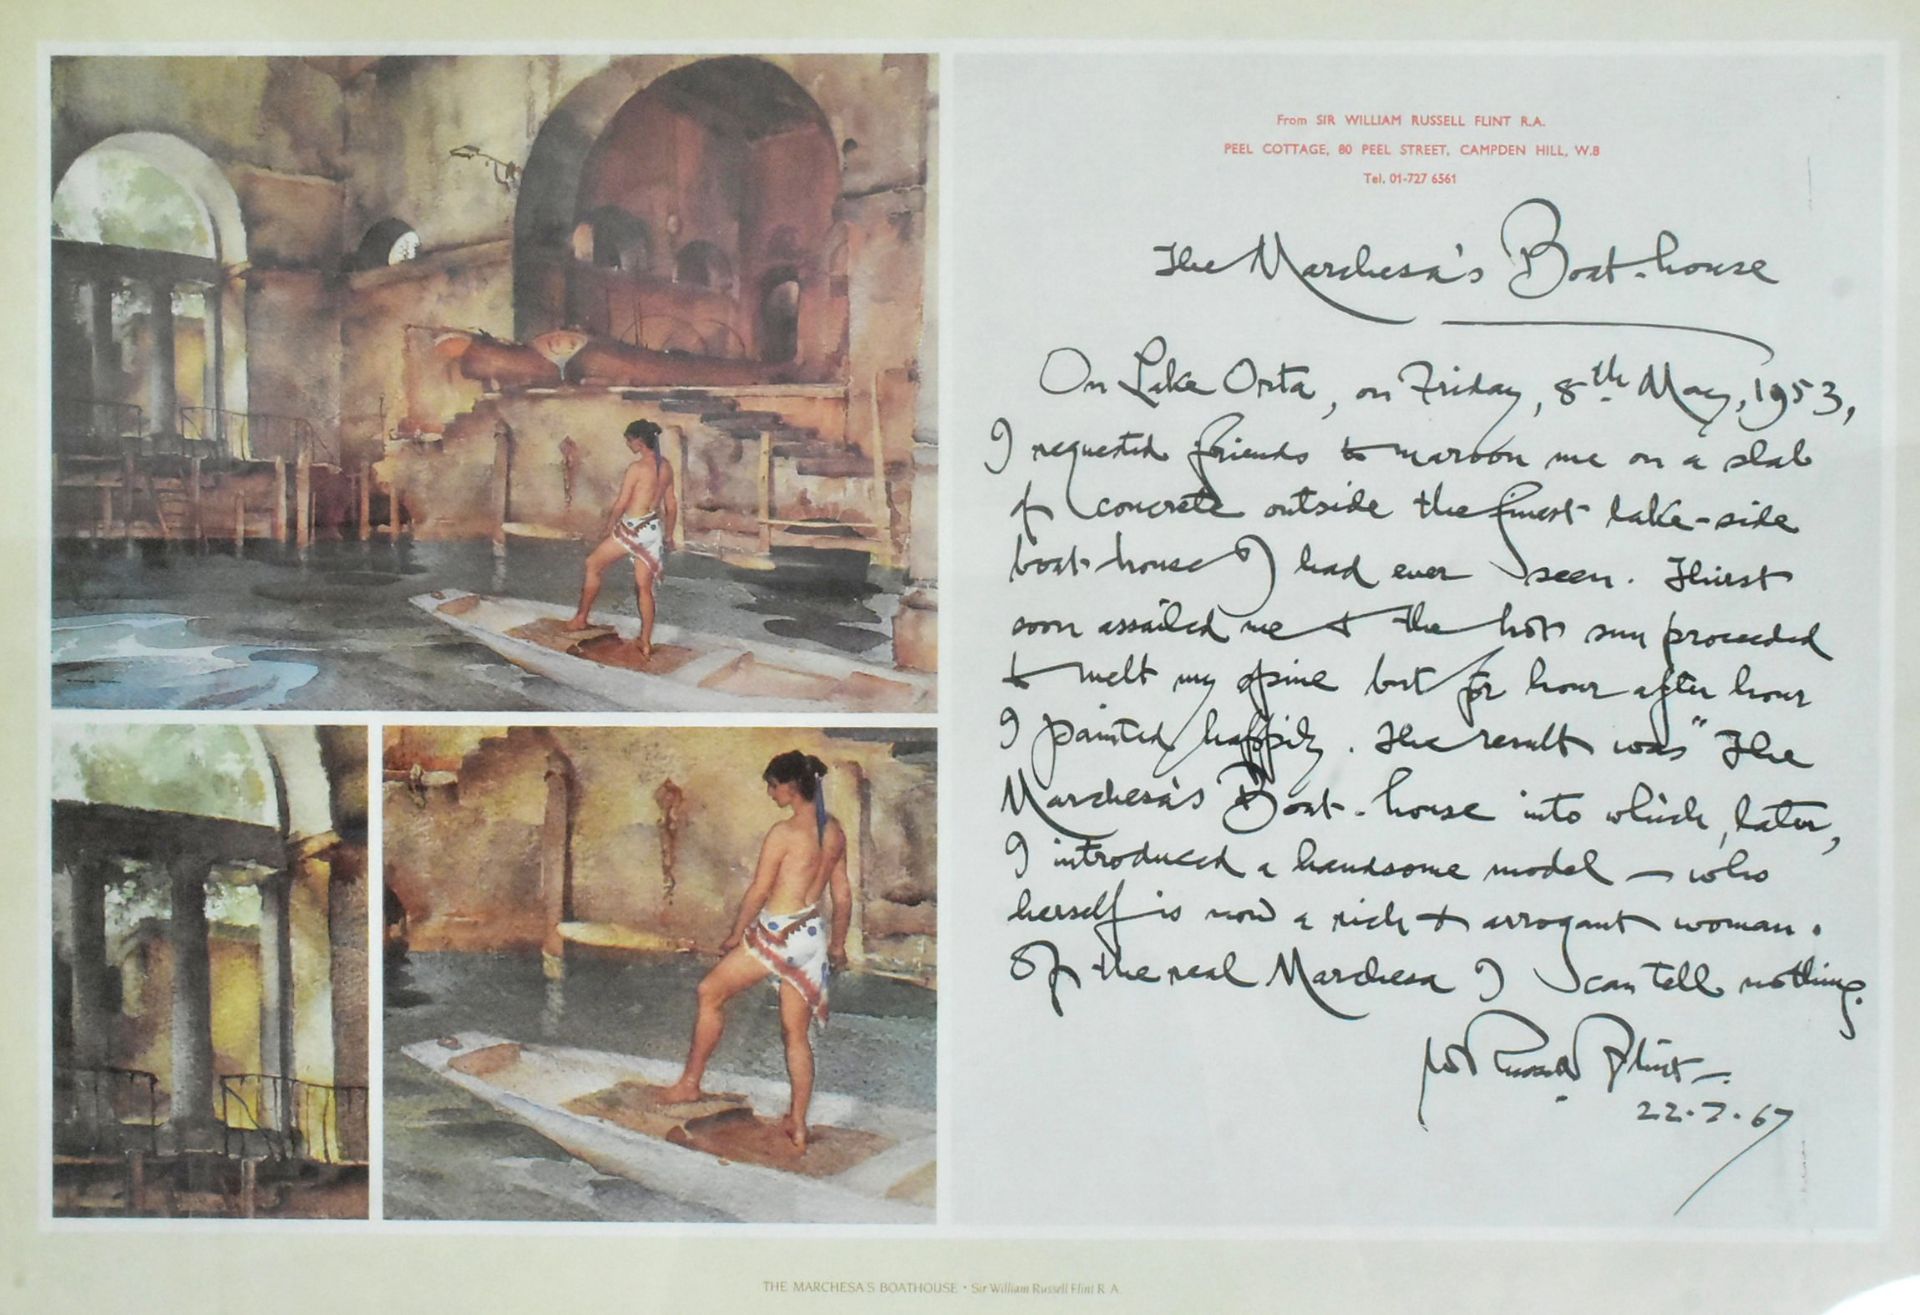 From SIR WILLIAM RUSSELL FLINT R.A.
PEEL COTTAGE, 80 PEEL STREET, CAMPDEN HILL, W.8
Tel. 01-727 6561
The Marchesa's Boat-house
On Lake Orta, on Friday, 8th May, 1953,
I requested friends to maroon me on a slab
of concrete outside the finest lake-side
boat-house I had ever seen. Thirst
soon assailed me & the hot sun proceeded
to melt my spine but for hour after hour
I painted happily. The result was "The
Marchesa's Boat-house into which, later,
I introduced a handsome model — who
herself is now a rich & arrogant woman.
Of the real Marchesa I can tell nothing.
W Russell Flint —
22.7.67
THE MARCHESA'S BOATHOUSE • Sir William Russell Flint R.A.